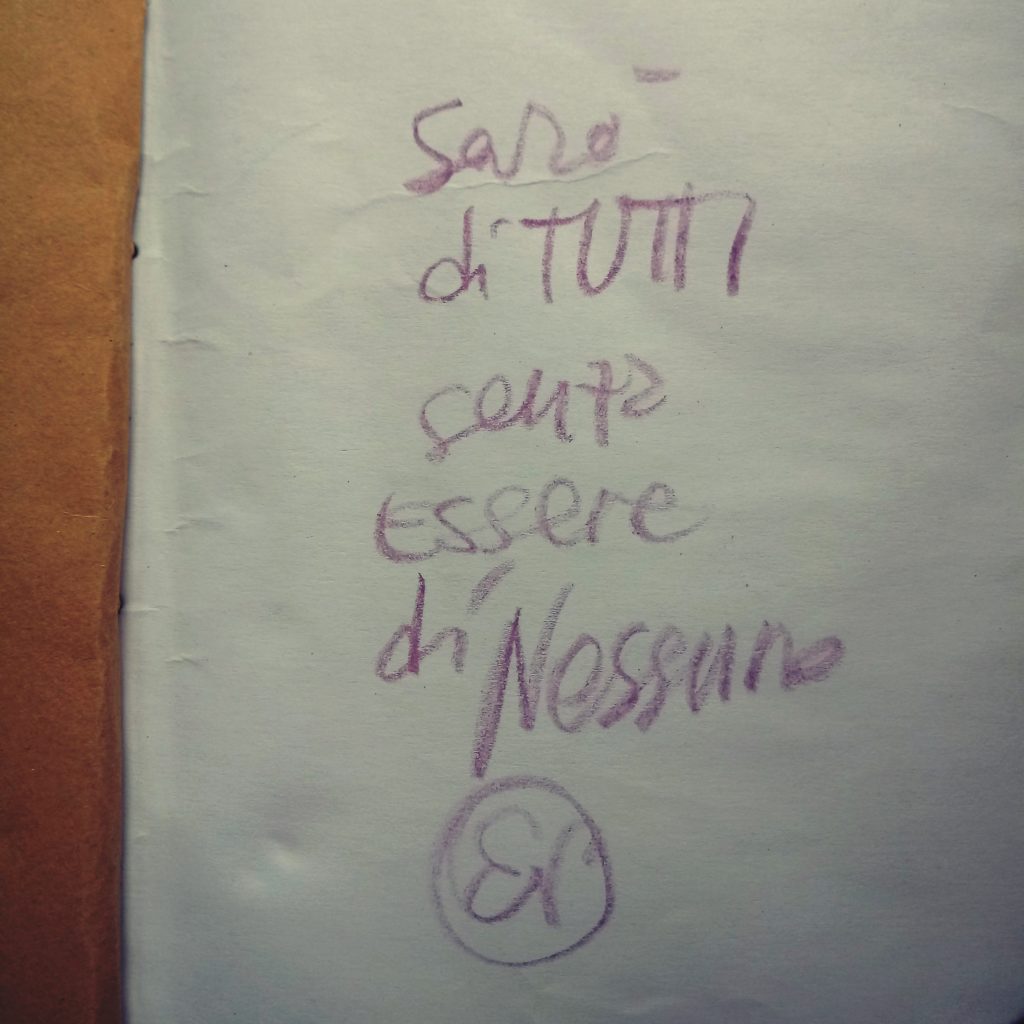 sarò
di TUTTI
senza
Essere
di Nessuno
Er